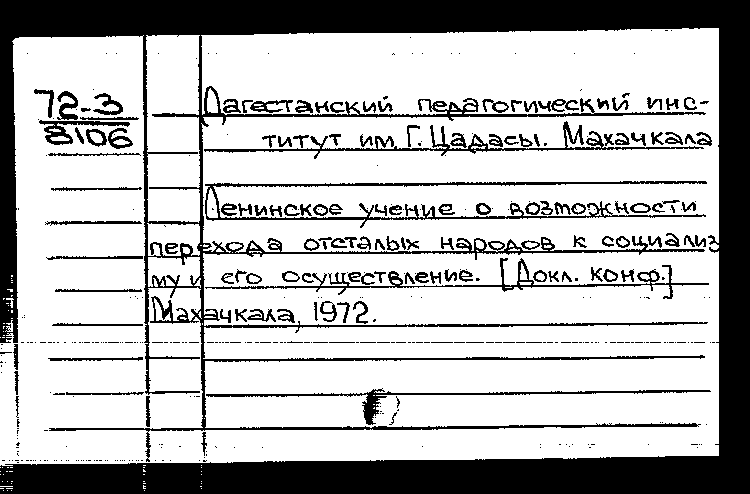 72-3
8106
Дагестанский педагогический инс-
титут им. Г. Цадасы. Махачкала
Ленинское учение о возможности
перехода отсталых народов к социализ
му и его осуществление. [Докл. конф.]
Махачкала, 1972.